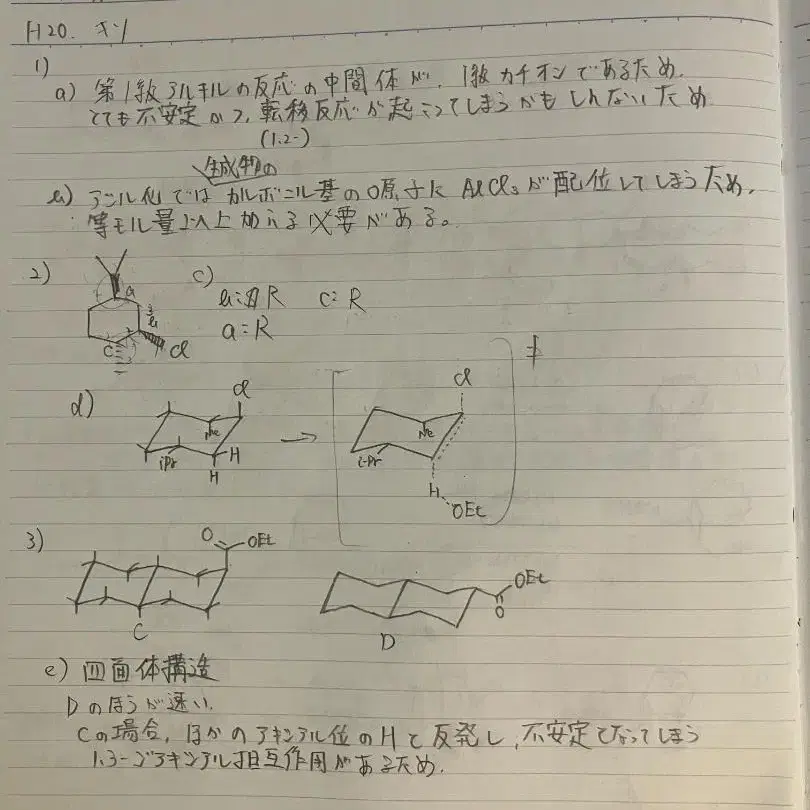 H20. オソ
1)
a) 第1級アルキルの反応の中間体が、1級カチオンであるため、
とても不安定かつ、転移反応が起こってしまうかもしんないため
(1,2-)
生成物の
b) アシル化ではカルボニル基のO原子にAlCl3が配位してしまうため、
等モル量以上加える必要がある。
2)
a
b
c
Cl
c)
b: R c: R
a: R
d)
Cl
Me
iPr
H
H
→
Cl
Me
i-Pr
H
OEt
‡
3)
O OEt
C
OEt
O
D
e) 四面体構造
Dのほうが速い。
Cの場合、ほかのアキシアル位のHと反発し、不安定となってしまう
1,3-ジアキシアル相互作用があるため。